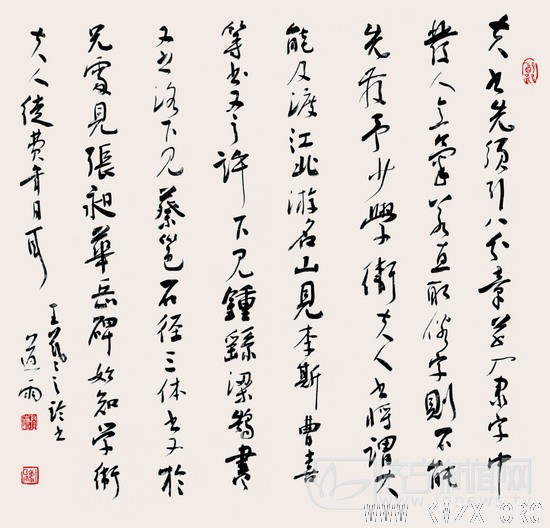 夫书先须引八分章草入隶字中
發人意氣若直取俗字則不能
先發予少學衛夫人书將謂大
能及渡江北游名山見李斯曹喜
等书又之许下見鍾繇梁鵠書
又之洛下見蔡邕石径三体书又於
兄處見張昶華岳碑始知学衛
夫人徒费年月耳
王羲之论书
道雨